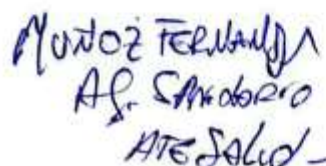 MUÑOZ FERNANDA
AG. SANITARIO
ATE SALUD